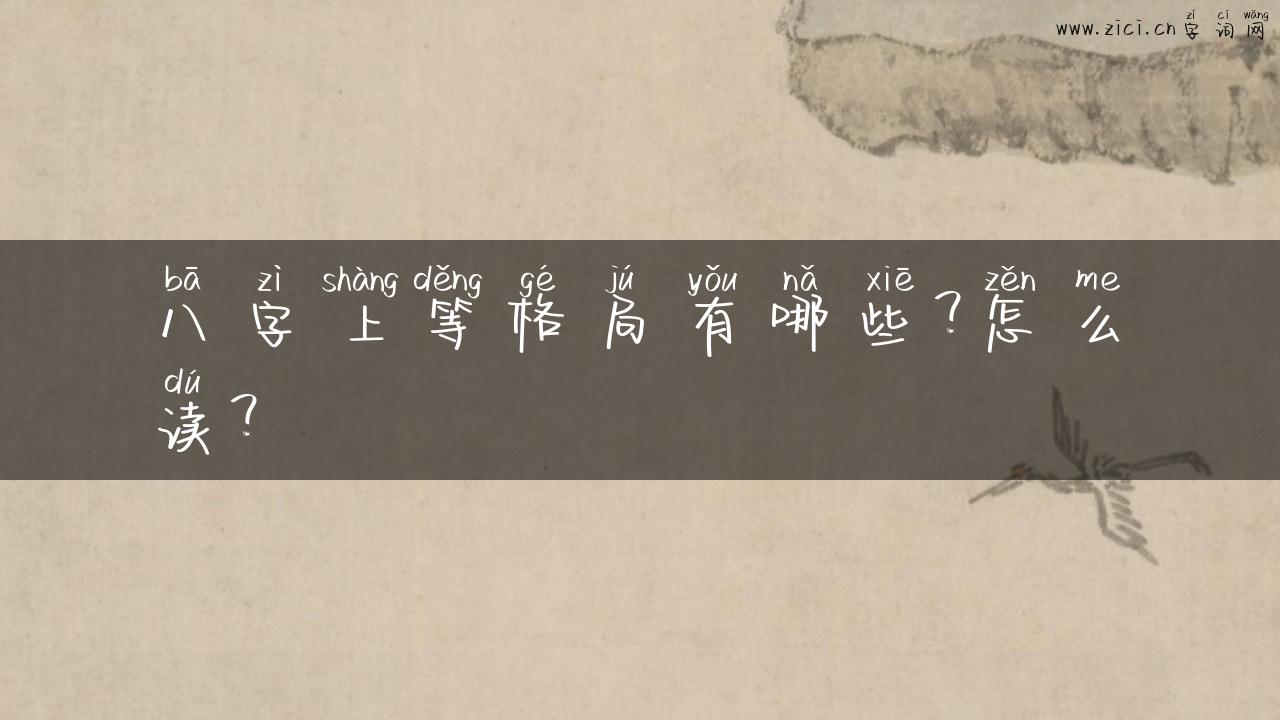 zì cí wǎng
www.zici.cn 字词网
bā zì shàng děng gé jú yǒu nǎ xiē zěn me
八字上等格局有哪些?怎么
dú
读?